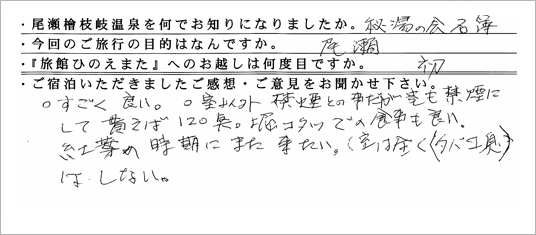 ・尾瀬檜枝岐温泉を何でお知りになりましたか。秘湯の会名簿
・今回のご旅行の目的はなんですか。 尾瀬
・『旅館ひのえまた』へのお越しは何度目ですか。 初
・ご宿泊いただきましたご感想・ご意見をお聞かせ下さい。
○すごく良い。○室以外禁煙との事だが室も禁煙に
して貰えば120点。堀コタツでの食事も良い。
紅葉の時期にまた来たい。(室は全く(タバコ臭)
は しない。